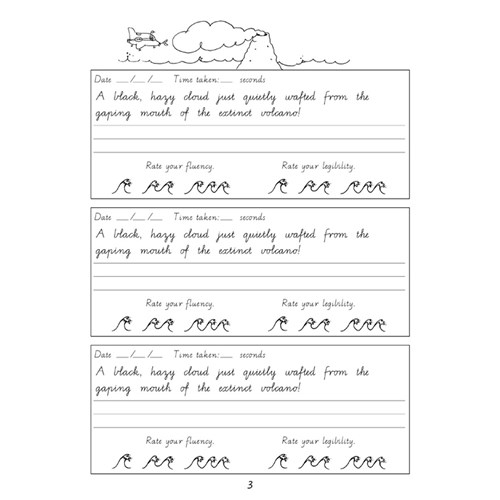 Date __/__/__ Time taken:__ seconds
A black, hazy cloud just quietly wafted from the
gaping mouth of the extinct volcano!
Rate your fluency. Rate your legibility.
Date __/__/__ Time taken:__ seconds
A black, hazy cloud just quietly wafted from the
gaping mouth of the extinct volcano!
Rate your fluency. Rate your legibility.
Date __/__/__ Time taken:__ seconds
A black, hazy cloud just quietly wafted from the
gaping mouth of the extinct volcano!
Rate your fluency. Rate your legibility.
3